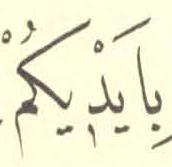 بِاَيَدْيِكُمْ